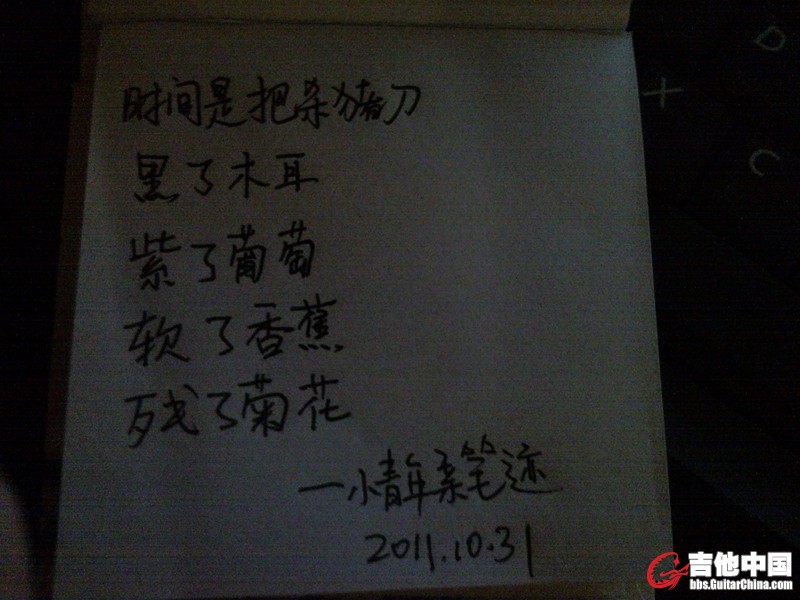 时间是把杀猪刀
黑了木耳
紫了葡萄
软了香蕉
残了菊花
一小青年亲笔迹
2011.10.31
吉他中国
bbs.GuitarChina.com